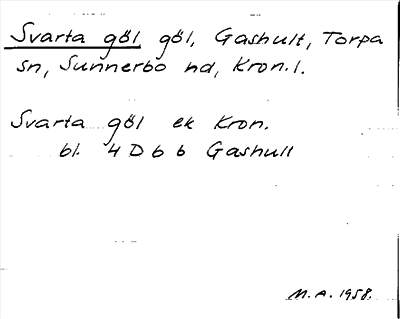 Svarta göl göl, Gashult, Torpa
sn, Sunnerbo hd, Kron. l.
Svarta göl ek Kron.
bl. 4 D 6 b Gashult
M.A. 1958.